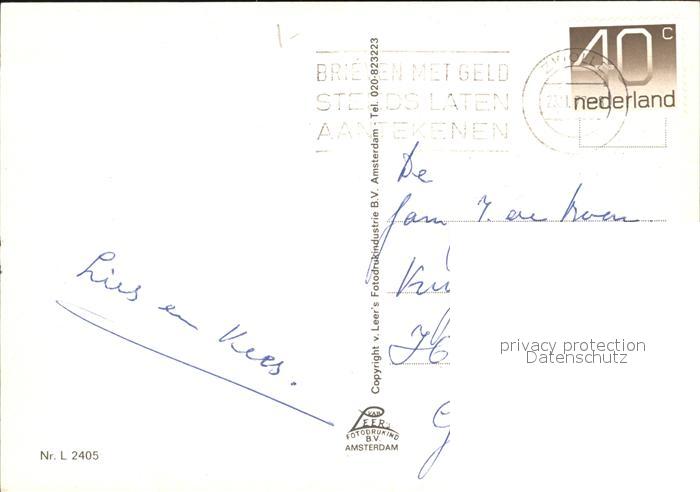 BRIEVEN MET GELD
STEEDS LATEN
AANTEKENEN
40 c
nederland
De
Fam
Lies en Kees.
privacy protection
Datenschutz
Copyright v. Leer's Fotodrukindustrie B.V. Amsterdam - Tel. 020-823223
VAN
LEER's
FOTODRUKIND
B.V.
AMSTERDAM
Nr. L 2405